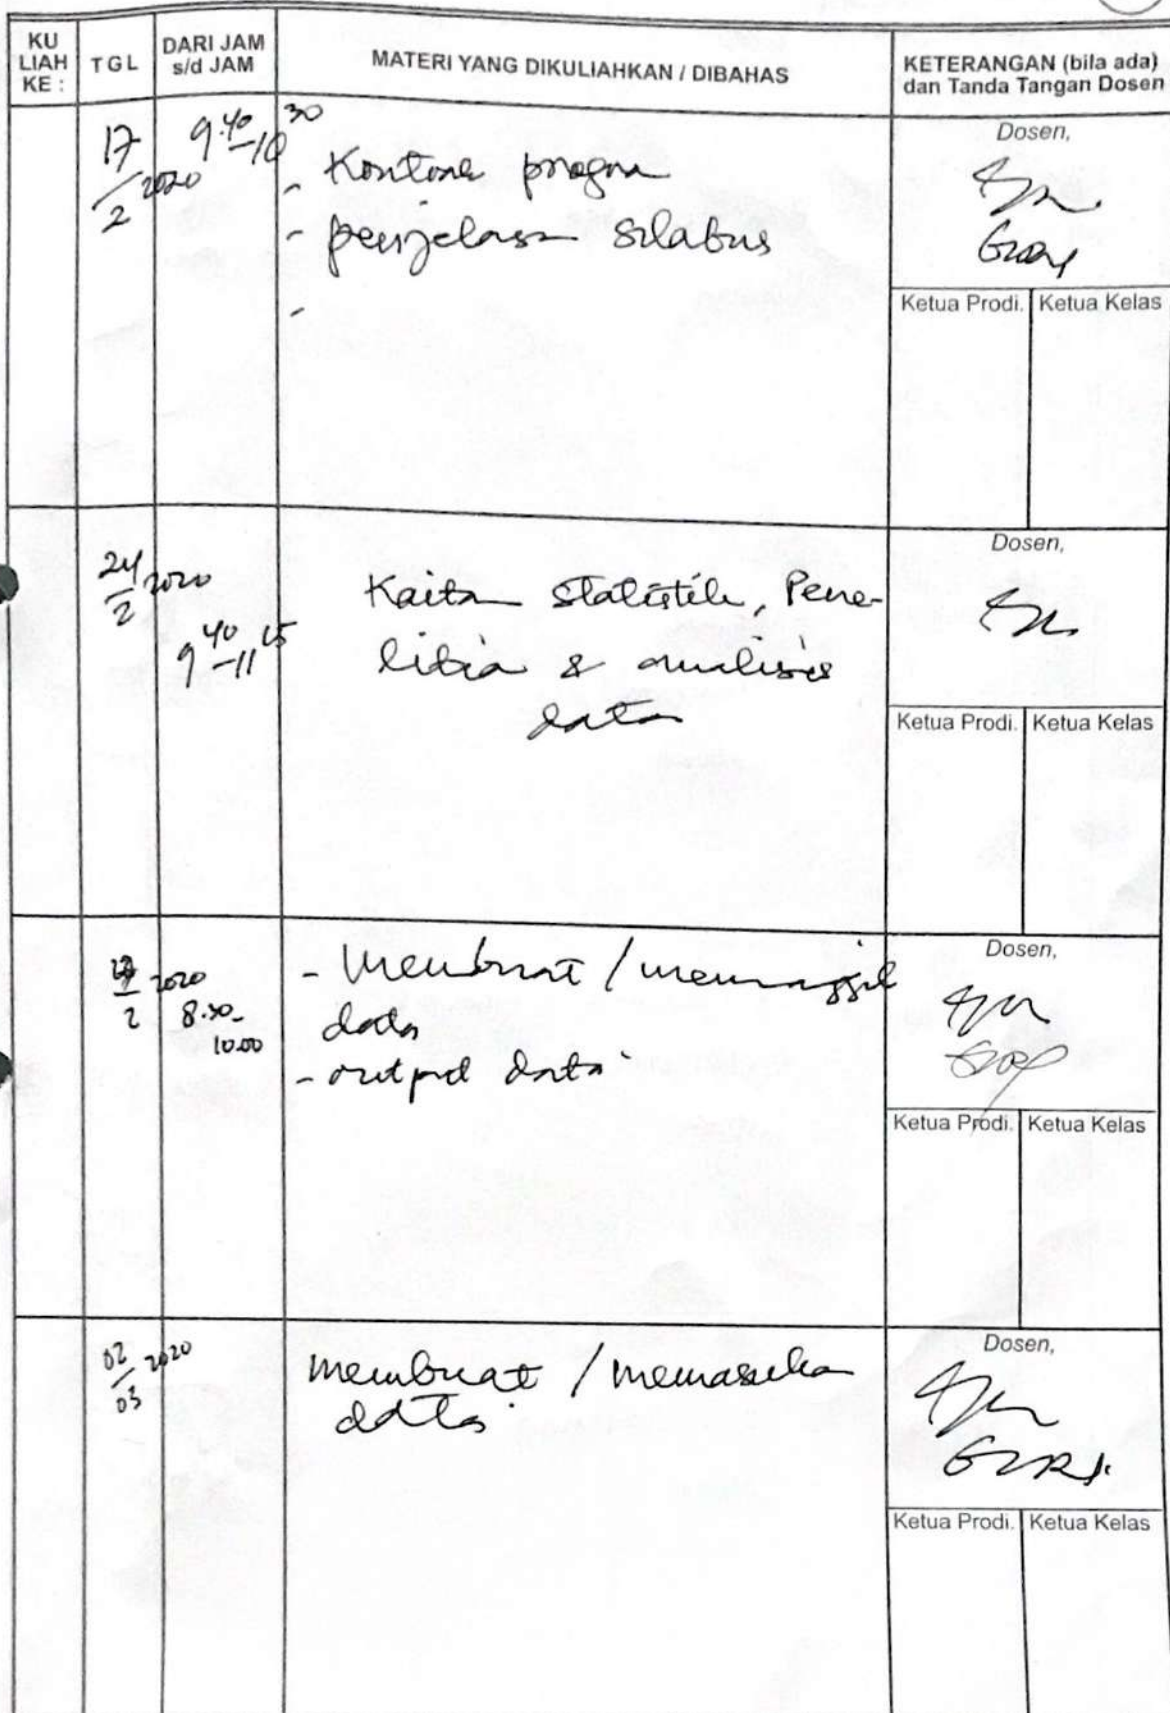 KU
LIAH
KE :
TGL
DARI JAM
s/d JAM
MATERI YANG DIKULIAHKAN / DIBAHAS
KETERANGAN (bila ada)
dan Tanda Tangan Dosen
17/2 2020
9.40-10 30
-
- penjelasan silabus
-
Dosen,
Ketua Prodi. Ketua Kelas
24/2 2020
9 40-11 15
Kaitan statistik, Pene-
litian & analisis
data
Dosen,
Ketua Prodi. Ketua Kelas
2020
2
8.30-
10.00
- Membuat / memanggil
data
- output data
Dosen,
Ketua Prodi. Ketua Kelas
02/03 2020
membuat / memasukan
data
Dosen,
Ketua Prodi. Ketua Kelas